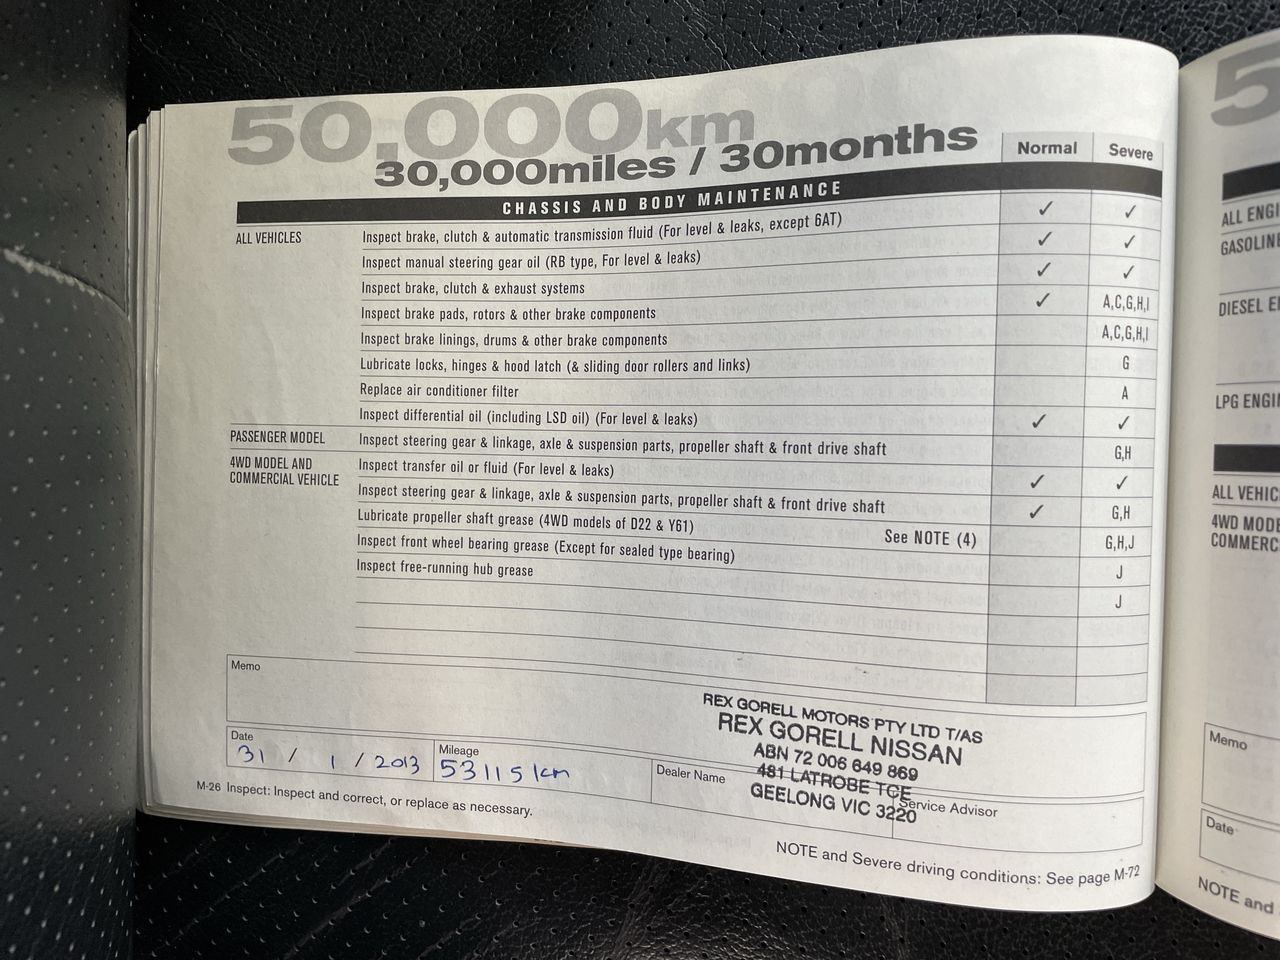 50,000km
30,000miles / 30months
Normal Severe
CHASSIS AND BODY MAINTENANCE
ALL VEHICLES Inspect brake, clutch & automatic transmission fluid (For level & leaks, except 6AT) ✓ ✓
Inspect manual steering gear oil (RB type, For level & leaks) ✓ ✓
Inspect brake, clutch & exhaust systems ✓ ✓
Inspect brake pads, rotors & other brake components ✓ A,C,G,H,I
Inspect brake linings, drums & other brake components A,C,G,H,I
Lubricate locks, hinges & hood latch (& sliding door rollers and links) G
Replace air conditioner filter A
Inspect differential oil (including LSD oil) (For level & leaks) ✓ ✓
PASSENGER MODEL Inspect steering gear & linkage, axle & suspension parts, propeller shaft & front drive shaft G,H
4WD MODEL AND COMMERCIAL VEHICLE Inspect transfer oil or fluid (For level & leaks) ✓ ✓
Inspect steering gear & linkage, axle & suspension parts, propeller shaft & front drive shaft ✓ G,H
Lubricate propeller shaft grease (4WD models of D22 & Y61) See NOTE (4) G,H,J
Inspect front wheel bearing grease (Except for sealed type bearing) J
Inspect free-running hub grease J
Memo
REX GORELL MOTORS PTY LTD T/AS
REX GORELL NISSAN
ABN 72 006 649 869
481 LATROBE TCE
GEELONG VIC 3220
Date
31 / 1 / 2013
Mileage
53115 km
Dealer Name
Service Advisor
M-26 Inspect: Inspect and correct, or replace as necessary.
NOTE and Severe driving conditions: See page M-72
5
ALL ENGI
GASOLINE
DIESEL E
LPG ENGI
ALL VEHIC
4WD MODE
COMMERC
Memo
Date
NOTE and